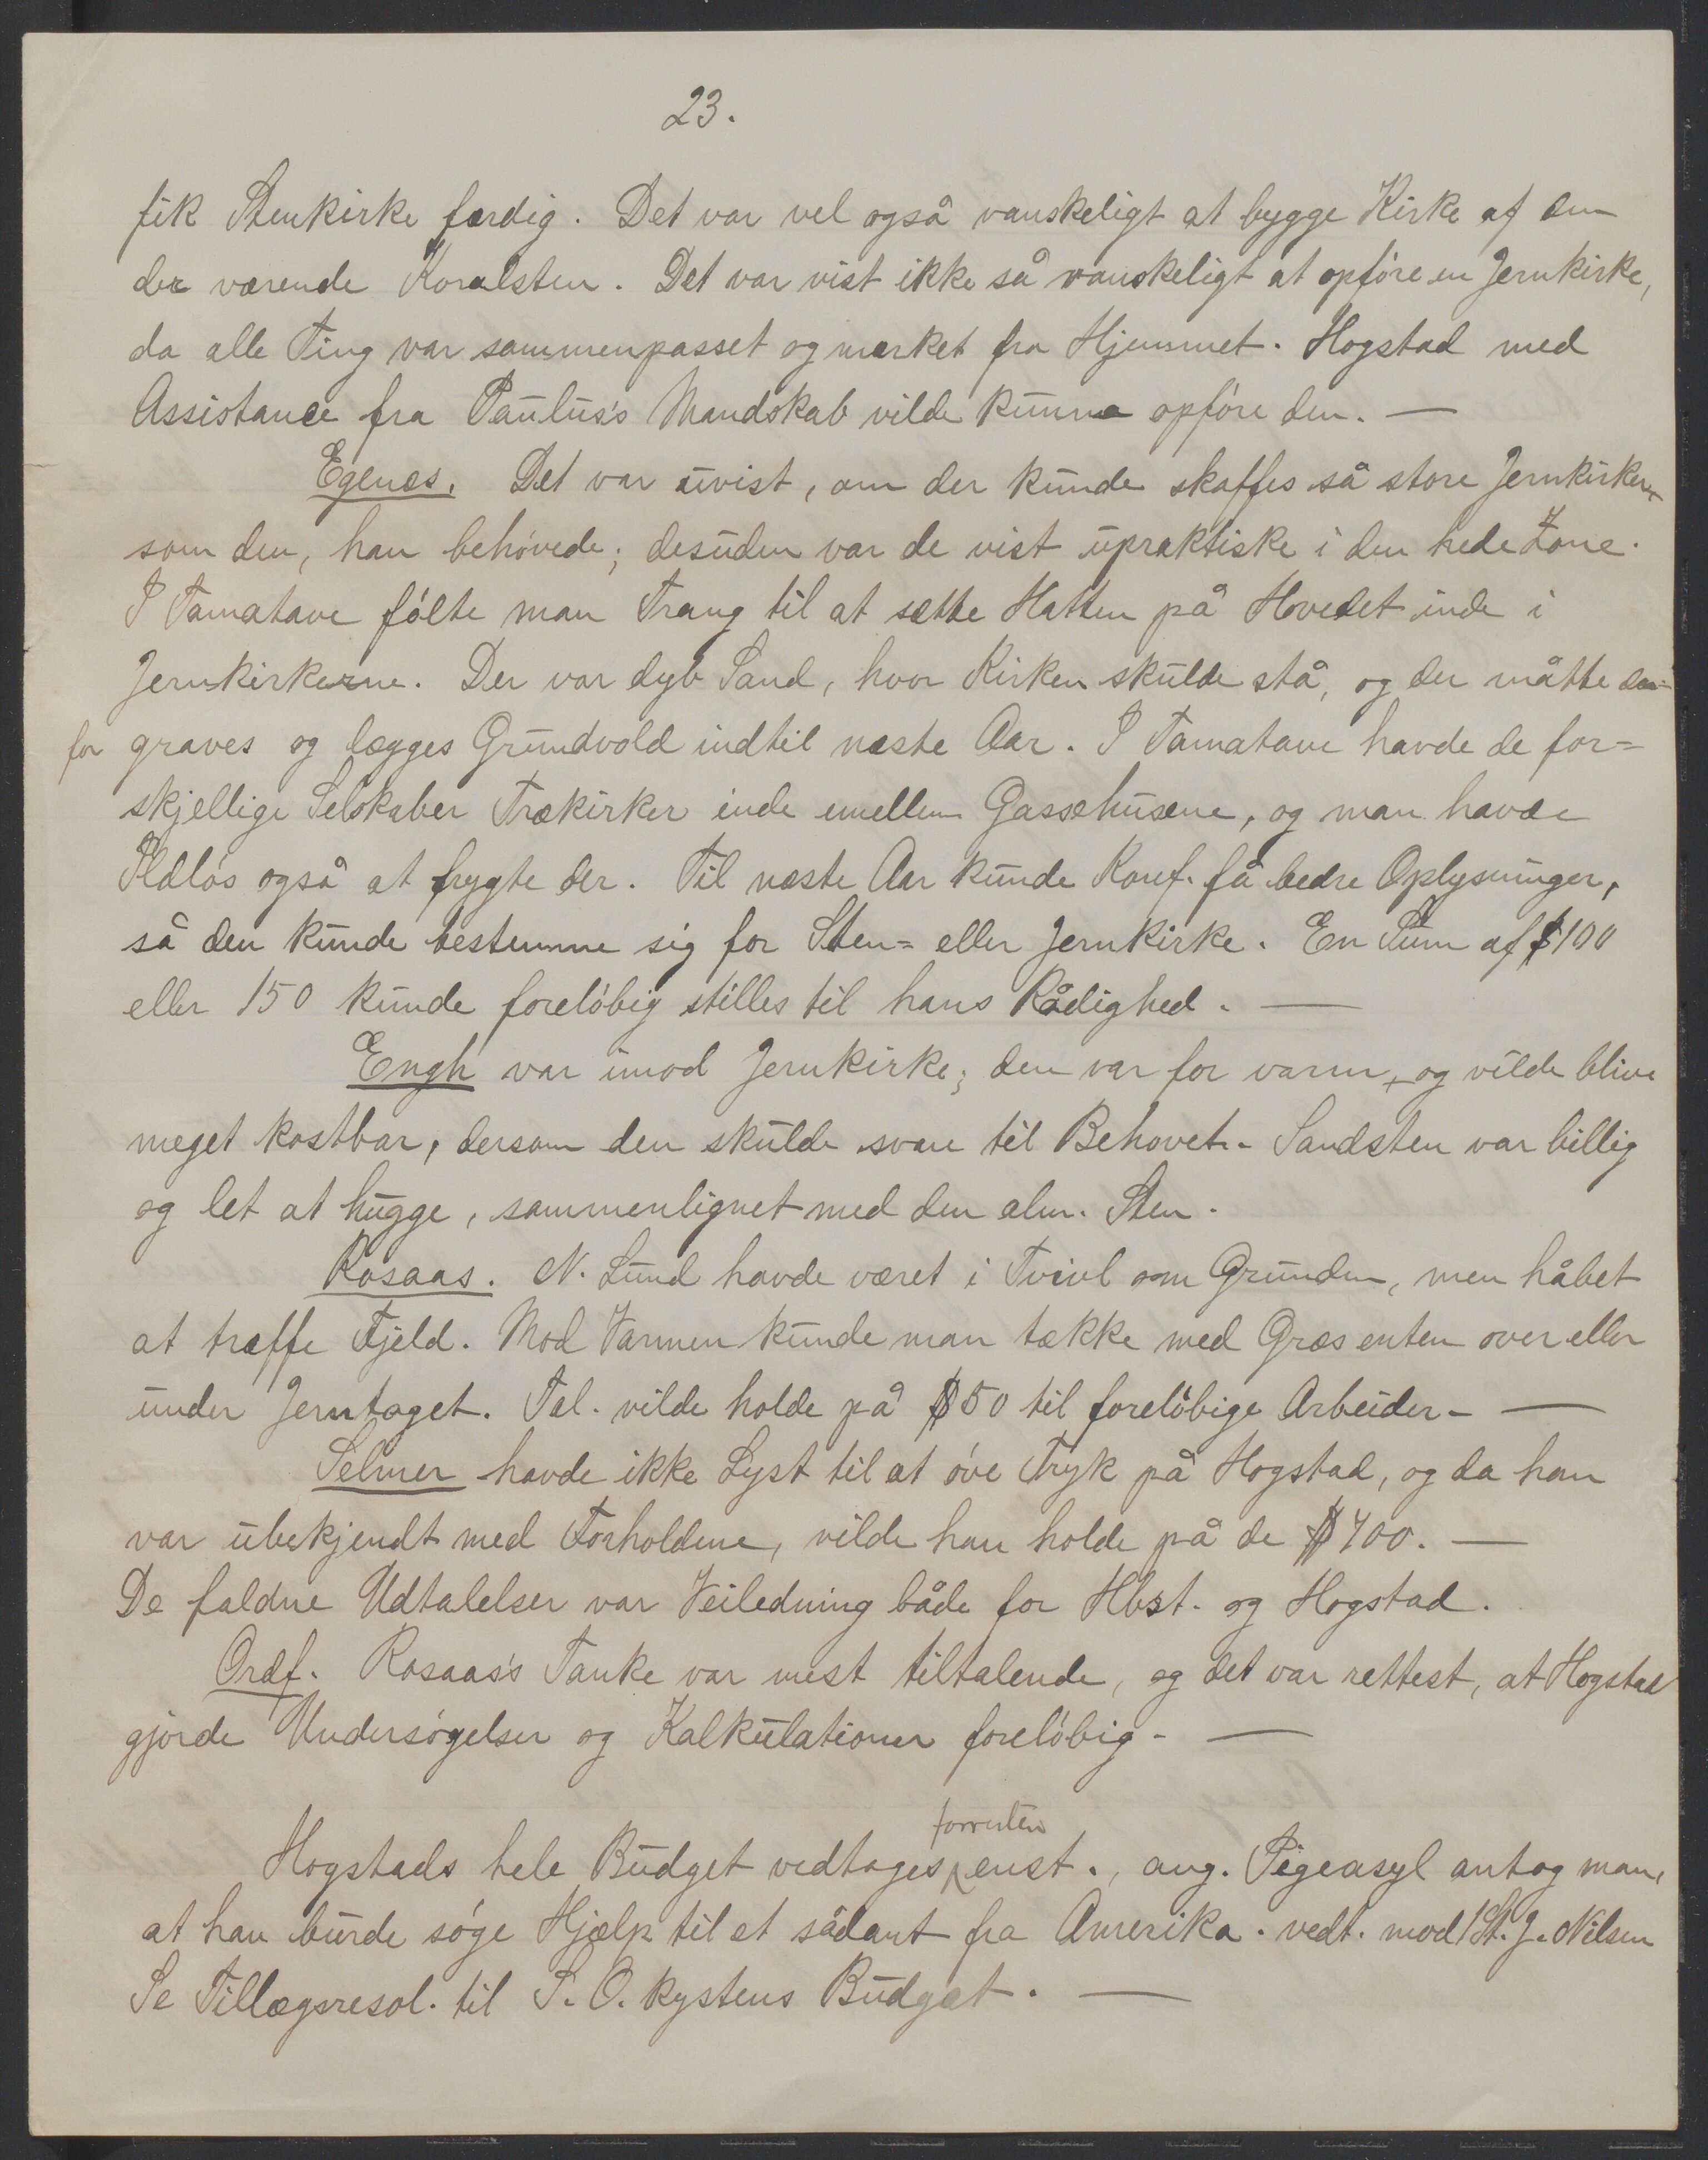 23.
fik Stenkirke færdig. Det var vel også vanskeligt at bygge Kirke af den
der værende Koralsten. Det var vist ikke så vanskeligt at opføre en Jernkirke,
da alle Ting var sammenpasset og mærket fra Hjemmet. Hogstad med
Assistance fra Paulus's Mandskab vilde kunne opføre den. —
Egenæs. Det var uvist, om der kunde skaffes så store Jernkirker
som den, han behøvede; desuden var de vist upraktiske i den hede Zone.
I Tamatave følte man Trang til at sætte Hatten på Hovedet inde i
Jernkirkerne. Der var dyb Sand, hvor Kirken skulde stå, og der måtte der=
for graves og lægges Grundvold indtil næste Aar. I Tamatave havde de for=
skjellige Selskaber Trækirker inde imellem Gassehusene, og man havde
Ildløs også at frygte der. Til næste Aar kunde Konf. få bedre Oplysninger,
så den kunde bestemme sig for Sten= eller Jernkirke. En Sum af $100
eller 150 kunde foreløbig stilles til hans Rådighed. —
Engh var imod Jernkirke; den var for varm, og vilde blive
meget kostbar, dersom den skulde svare til Behovet. Sandsten var billig
og let at hugge, sammenlignet med den alm. Sten.
Rosaas. N. Lund havde været i Tvivl om Grunden, men håbet
at træffe Fjeld. Mod Varmen kunde man tække med Græs enten over eller
under Jerntaget. Tal. vilde holde på $50 til foreløbige Arbeider. —
Selmer havde ikke Lyst til at øve Tryk på Hogstad, og da han
var ubekjendt med Forholdene, vilde han holde på de $400. —
De faldne Udtalelser var Veiledning både for Hbst. og Hogstad.
Ordf. Rosaas's Tanke var mest tiltalende, og det var rettest, at Hogstad
gjorde Undersøgelser og Kalkulationer foreløbig. —
forresten
Hogstads hele Budget vedtages enst., ang. Pigeasyl antog man,
at han burde søge Hjælp til et sådant fra Amerika. vedt. mod 1 St. J. Nilsen
Se Tillægsresol. til S. O. kystens Budget. —